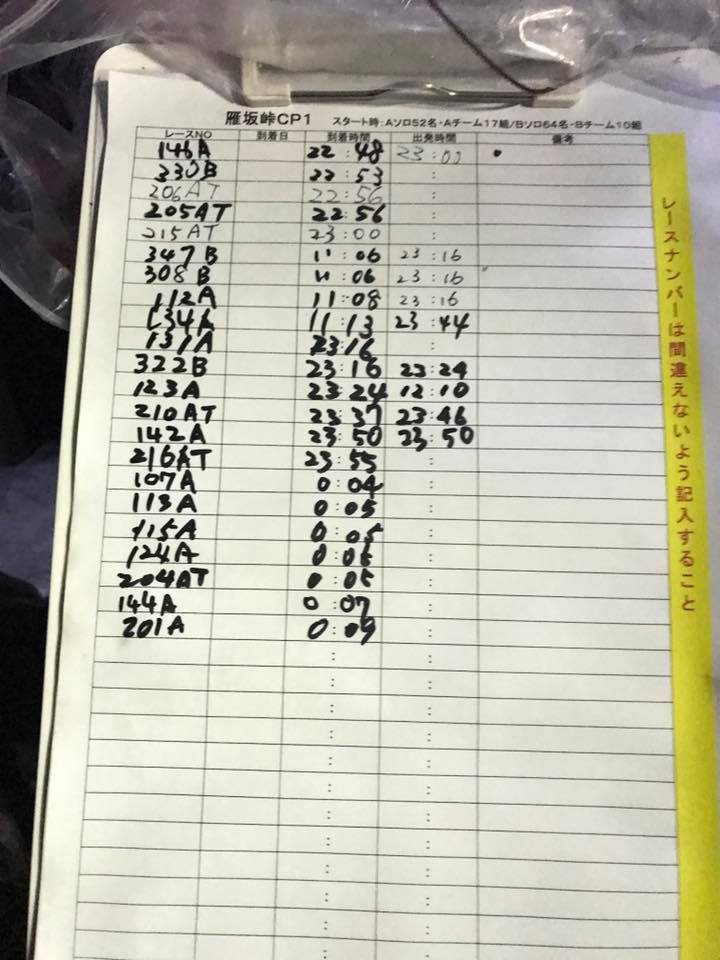 雁坂峠CP1 スタート時:Aソロ52名・Aチーム17組/Bソロ64名・Bチーム10組
レースNO 到着日 到着時間 出発時間 備考
146A 22:48 23:01
330B 22:53 :
206AT 22:56 :
205AT 22:56 :
215AT 23:00 :
347B 11:06 23:16
308B 11:06 23:16
112A 11:08 23:16
134A 11:13 23:44
131A 23:16 :
322B 23:16 23:24
123A 23:24 12:10
210AT 23:37 23:46
142A 23:50 23:50
216AT 23:55 :
107A 0:04 :
113A 0:05 :
115A 0:05 :
124A :
204AT 0:05 :
144A 0:07 :
201A 0:09 :
レースナンバーは間違えないよう記入すること